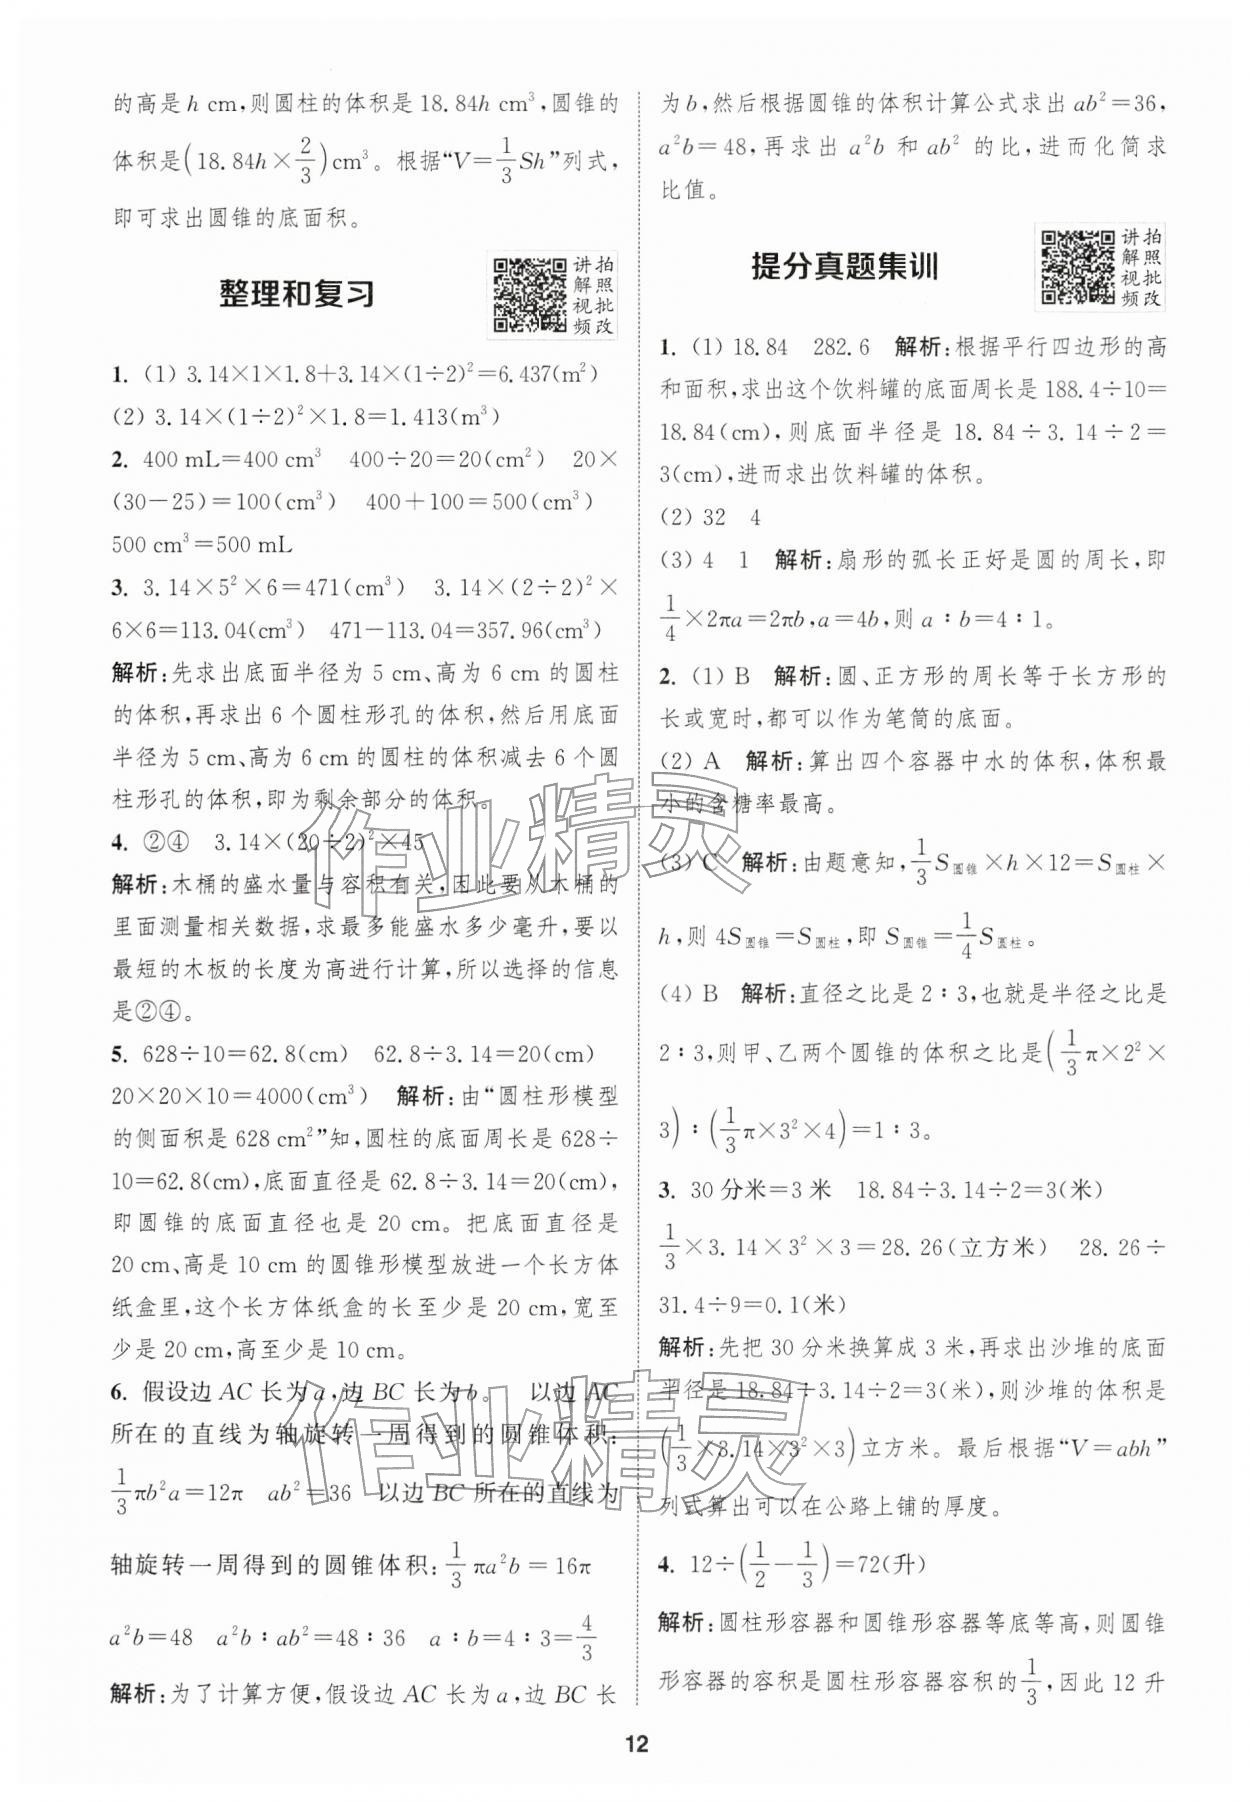 的高是 h cm,则圆柱的体积是 18.84h cm³,圆锥的
体积是(18.84h×2/3)cm³。根据“V=1/3Sh”列式,
即可求出圆锥的底面积。
整理和复习
讲解视频
拍照批改
1. (1) 3.14×1×1.8+3.14×(1÷2)²=6.437(m²)
(2) 3.14×(1÷2)²×1.8=1.413(m³)
2. 400 mL=400 cm³ 400÷20=20(cm²) 20×
(30-25)=100(cm³) 400+100=500(cm³)
500 cm³=500 mL
3. 3.14×5²×6=471(cm³) 3.14×(2÷2)²×
6×6=113.04(cm³) 471-113.04=357.96(cm³)
解析:先求出底面半径为 5 cm、高为 6 cm 的圆柱
的体积,再求出 6 个圆柱形孔的体积,然后用底面
半径为 5 cm、高为 6 cm 的圆柱的体积减去 6 个圆
柱形孔的体积,即为剩余部分的体积。
4. ②④ 3.14×(20÷2)²×45
解析:木桶的盛水量与容积有关,因此要从木桶的
里面测量相关数据,求最多能盛水多少毫升,要以
最短的木板的长度为高进行计算,所以选择的信息
是②④。
5. 628÷10=62.8(cm) 62.8÷3.14=20(cm)
20×20×10=4000(cm³) 解析:由“圆柱形模型
的侧面积是 628 cm²”知,圆柱的底面周长是 628÷
10=62.8(cm),底面直径是 62.8÷3.14=20(cm),
即圆锥的底面直径也是 20 cm。把底面直径是
20 cm、高是 10 cm 的圆锥形模型放进一个长方体
纸盒里,这个长方体纸盒的长至少是 20 cm,宽至
少是 20 cm,高至少是 10 cm。
6. 假设边 AC 长为 a,边 BC 长为 b。 以边 AC
所在的直线为轴旋转一周得到的圆锥体积:
1/3πb²a=12π ab²=36 以边 BC 所在的直线为
轴旋转一周得到的圆锥体积:1/3πa²b=16π
a²b=48 a²b∶ab²=48∶36 a∶b=4∶3=4/3
解析:为了计算方便,假设边 AC 长为 a,边 BC 长
为 b,然后根据圆锥的体积计算公式求出 ab²=36,
a²b=48,再求出 a²b 和 ab² 的比,进而化简求
比值。
提分真题集训
讲解视频
拍照批改
1. (1) 18.84 282.6 解析:根据平行四边形的高
和面积,求出这个饮料罐的底面周长是 188.4÷10=
18.84(cm),则底面半径是 18.84÷3.14÷2=
3(cm),进而求出饮料罐的体积。
(2) 32 4
(3) 4 1 解析:扇形的弧长正好是圆的周长,即
1/4×2πa=2πb,a=4b,则 a∶b=4∶1。
2. (1) B 解析:圆、正方形的周长等于长方形的
长或宽时,都可以作为笔筒的底面。
(2) A 解析:算出四个容器中水的体积,体积最
小的含糖率最高。
(3) C 解析:由题意知,1/3S圆锥×h×12=S圆柱×
h,则 4S圆锥=S圆柱,即 S圆锥=1/4S圆柱。
(4) B 解析:直径之比是 2∶3,也就是半径之比是
2∶3,则甲、乙两个圆锥的体积之比是(1/3π×2²×
3)∶(1/3π×3²×4)=1∶3。
3. 30 分米=3 米 18.84÷3.14÷2=3(米)
1/3×3.14×3²×3=28.26(立方米) 28.26÷
31.4÷9=0.1(米)
解析:先把 30 分米换算成 3 米,再求出沙堆的底面
半径是 18.84÷3.14÷2=3(米),则沙堆的体积是
(1/3×3.14×3²×3)立方米。最后根据“V=abh”
列式算出可以在公路上铺的厚度。
4. 12÷(1/2-1/3)=72(升)
解析:圆柱形容器和圆锥形容器等底等高,则圆锥
形容器的容积是圆柱形容器容积的1/3,因此 12 升
12
作业精灵
作业精灵